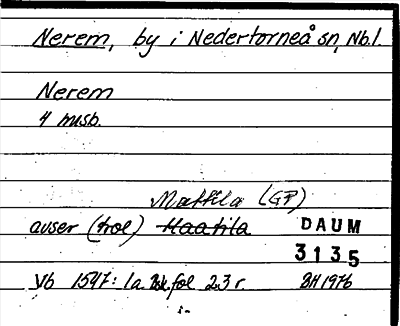 Nerem, by i Nedertorneå sn, Nb.l.
Nerem
4 msb.
Mattila (GP)
avser (trol) Haatila
DAUM
3135
Vb 1547: 1a. Bsk. fol 23 r. BH 1976